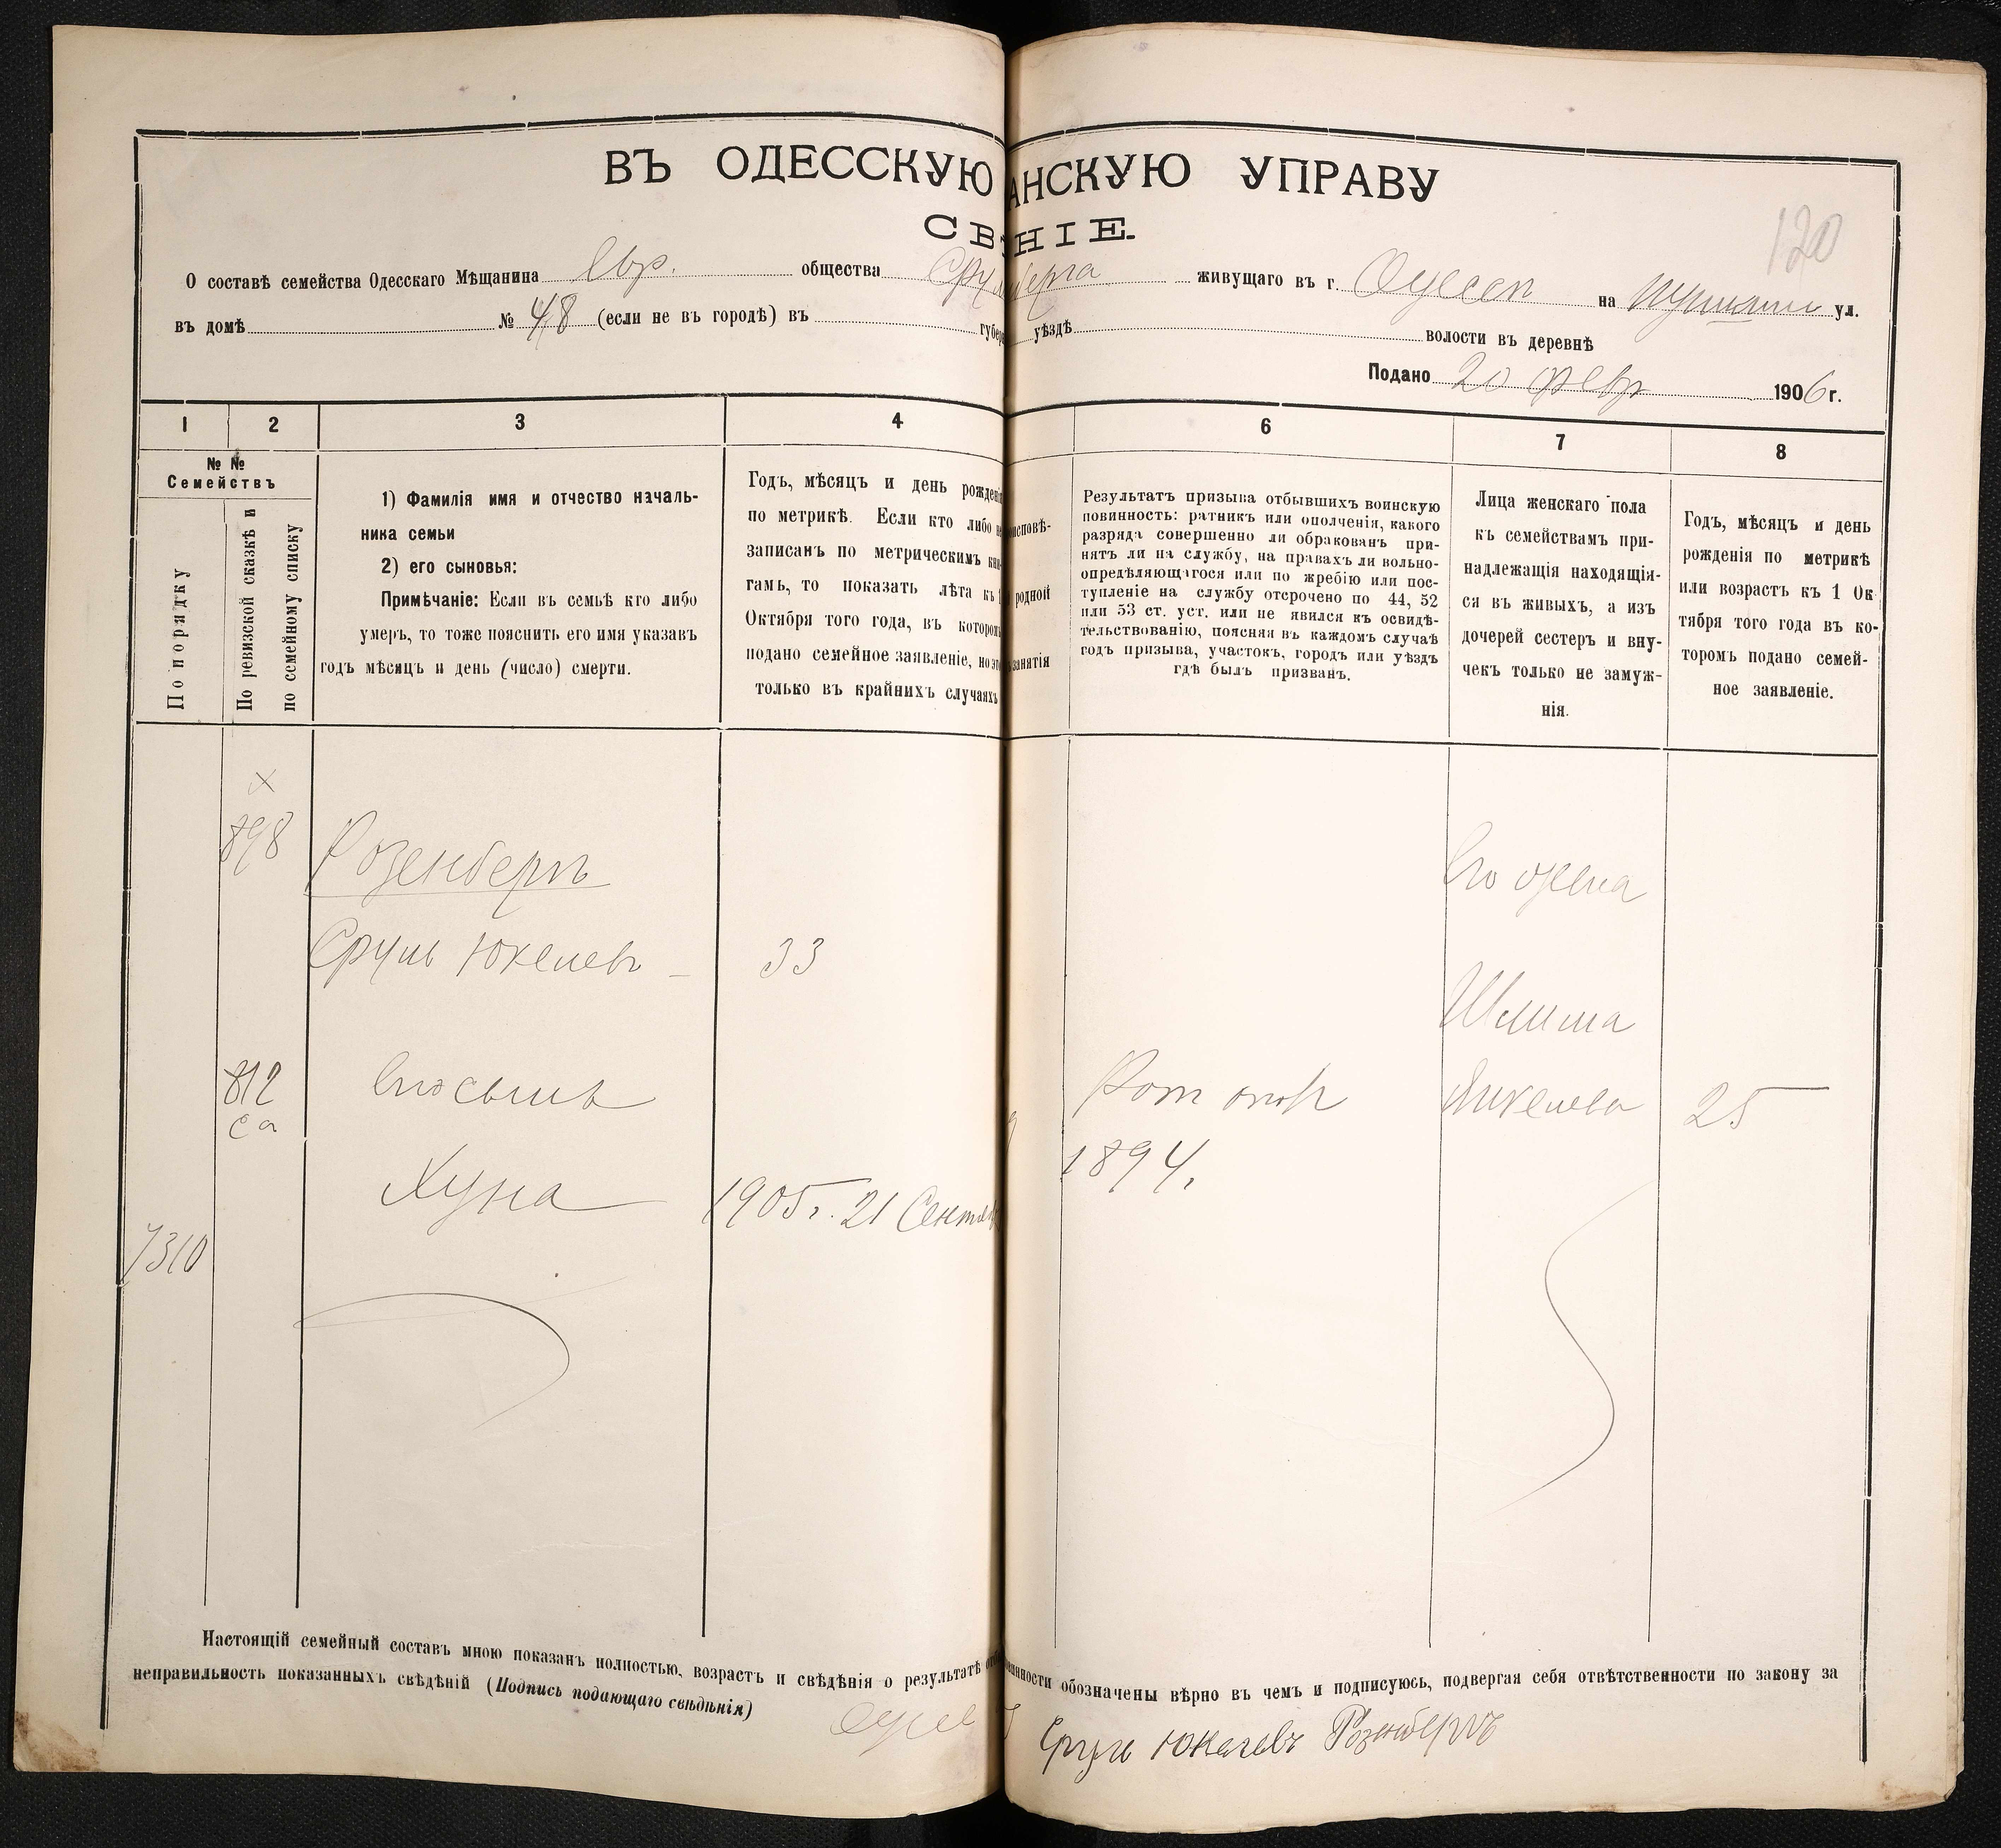 ВЪ ОДЕССКУЮ АНСКУЮ УПРАВУ
СВ НІЕ.
120
О составѣ семейства Одесскаго Мѣщанина Евр. общества живущаго въ г. Одессѣ на ул.
въ домѣ № 48 (если не въ городѣ) въ губер уѣздѣ волости въ деревнѣ
Подано 20 февр 1906 г.
1 2 3 4 6 7 8
№ №
Семействъ
По порядку
По ревизской сказкѣ и
по семейному списку
1) Фамилія имя и отчество началь-
ника семьи
2) его сыновья:
Примѣчаніе: Если въ семьѣ кто либо
умеръ, то тоже пояснить его имя указавъ
годъ мѣсяцъ и день (число) смерти.
Годъ, мѣсяцъ и день рожденія
по метрикѣ. Если кто либо не
записанъ по метрическимъ кни-
гамъ, то показать лѣта къ 1
Октября того года, въ которомъ
подано семейное заявленіе, но это
только въ крайнихъ случаяхъ
исповѣ-
родной
занятія
Результатъ призыва отбывшихъ воинскую
повинность: ратникъ или ополченія, какого
разряда совершенно ли обракованъ при-
нятъ ли на службу, на правахъ ли вольно-
опредѣляющагося или по жребію или пос-
тупленіе на службу отсрочено по 44, 52
или 53 ст. уст. или не явился къ освидѣ-
тельствованію, поясняя въ каждомъ случаѣ
годъ призыва, участокъ, городъ или уѣздъ
гдѣ былъ призванъ.
Лица женскаго пола
къ семействамъ при-
надлежащія находящія-
ся въ живыхъ, а изъ
дочерей сестеръ и вну-
чекъ только не замуж-
нія.
Годъ, мѣсяцъ и день
рожденія по метрикѣ
или возрастъ къ 1 Ок
тября того года въ ко-
торомъ подано семей-
ное заявленіе.
898
Розенбергъ
Его жена
Сруль Юкелевъ 33
812
са
Его сынъ
Рат опол
Янкелева 25
1894.
Хуна 1905г. 21 Сентяб
7310
Настоящій семейный составъ мною показанъ полностью, возрастъ и свѣдѣнія о результатѣ отб винности обозначены вѣрно въ чемъ и подписуюсь, подвергая себя отвѣтственности по закону за
неправильность показанныхъ свѣдѣній (Подпись подающаго свѣдѣнія)
Сруль Юкелевъ Розенбергъ